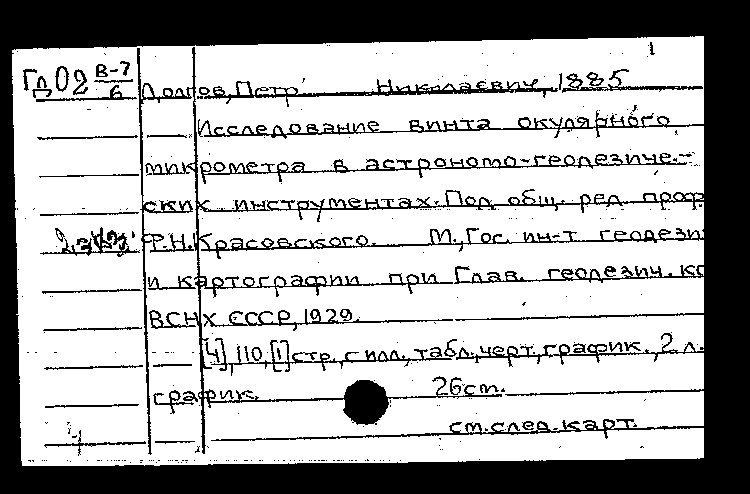 1
Гд 02 В-7/6 Долгов, Петр Николаевич, 1885
Исследование винта окулярного
микрометра в астрономо-геодезиче-
ских инструментах. Под общ. ред. проф
Ф.Н. Красовского. М., Гос. ин-т геодези
и картографии при Глав. геодезич. ко
ВСНХ СССР, 1929.
[4], 110, [1] стр., с илл., табл., черт., график., 2 л.
график. 26 см.
см. след. карт.